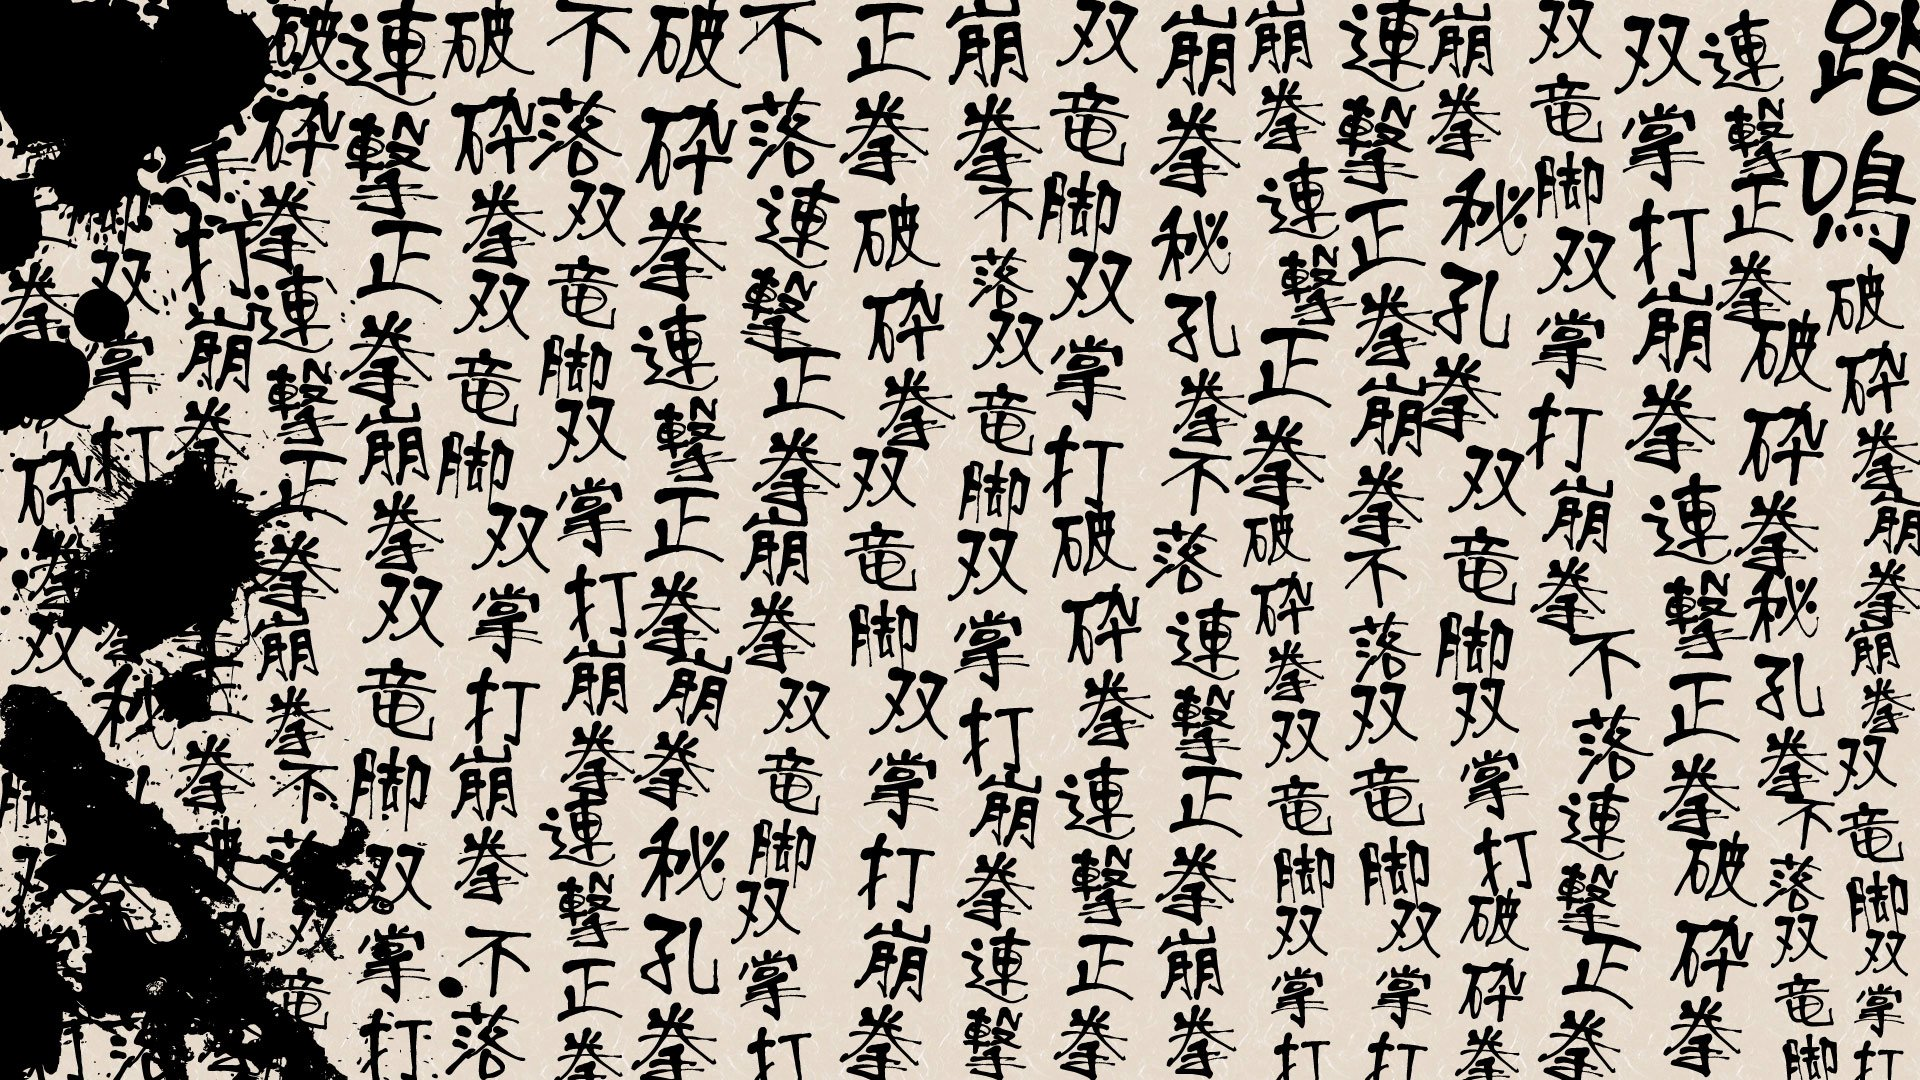 踏鳴破砕拳崩拳崩拳双竜脚双掌打
連撃正拳破砕拳秘孔拳不落双竜脚
双掌打崩拳連撃正拳破砕拳
双竜脚双掌打崩拳不落連撃正拳
崩拳秘孔拳双竜脚双掌打破砕拳
連撃正拳崩拳不落双竜脚双掌打
崩拳連撃正拳破砕拳双竜脚双掌打
崩拳秘孔拳不落連撃正拳崩拳
双竜脚双掌打破砕拳連撃正拳
崩拳不落双竜脚双掌打崩拳連撃
正拳破砕拳双竜脚双掌打崩拳
不落連撃正拳崩拳双竜脚双掌打
破砕拳連撃正拳崩拳秘孔拳
不落双竜脚双掌打崩拳連撃正拳
破砕拳双竜脚双掌打崩拳不落
連撃正拳崩拳双竜脚双掌打
破砕拳連撃正拳崩拳不落双竜
打崩拳拳破
双掌打秘
拳砕拳双